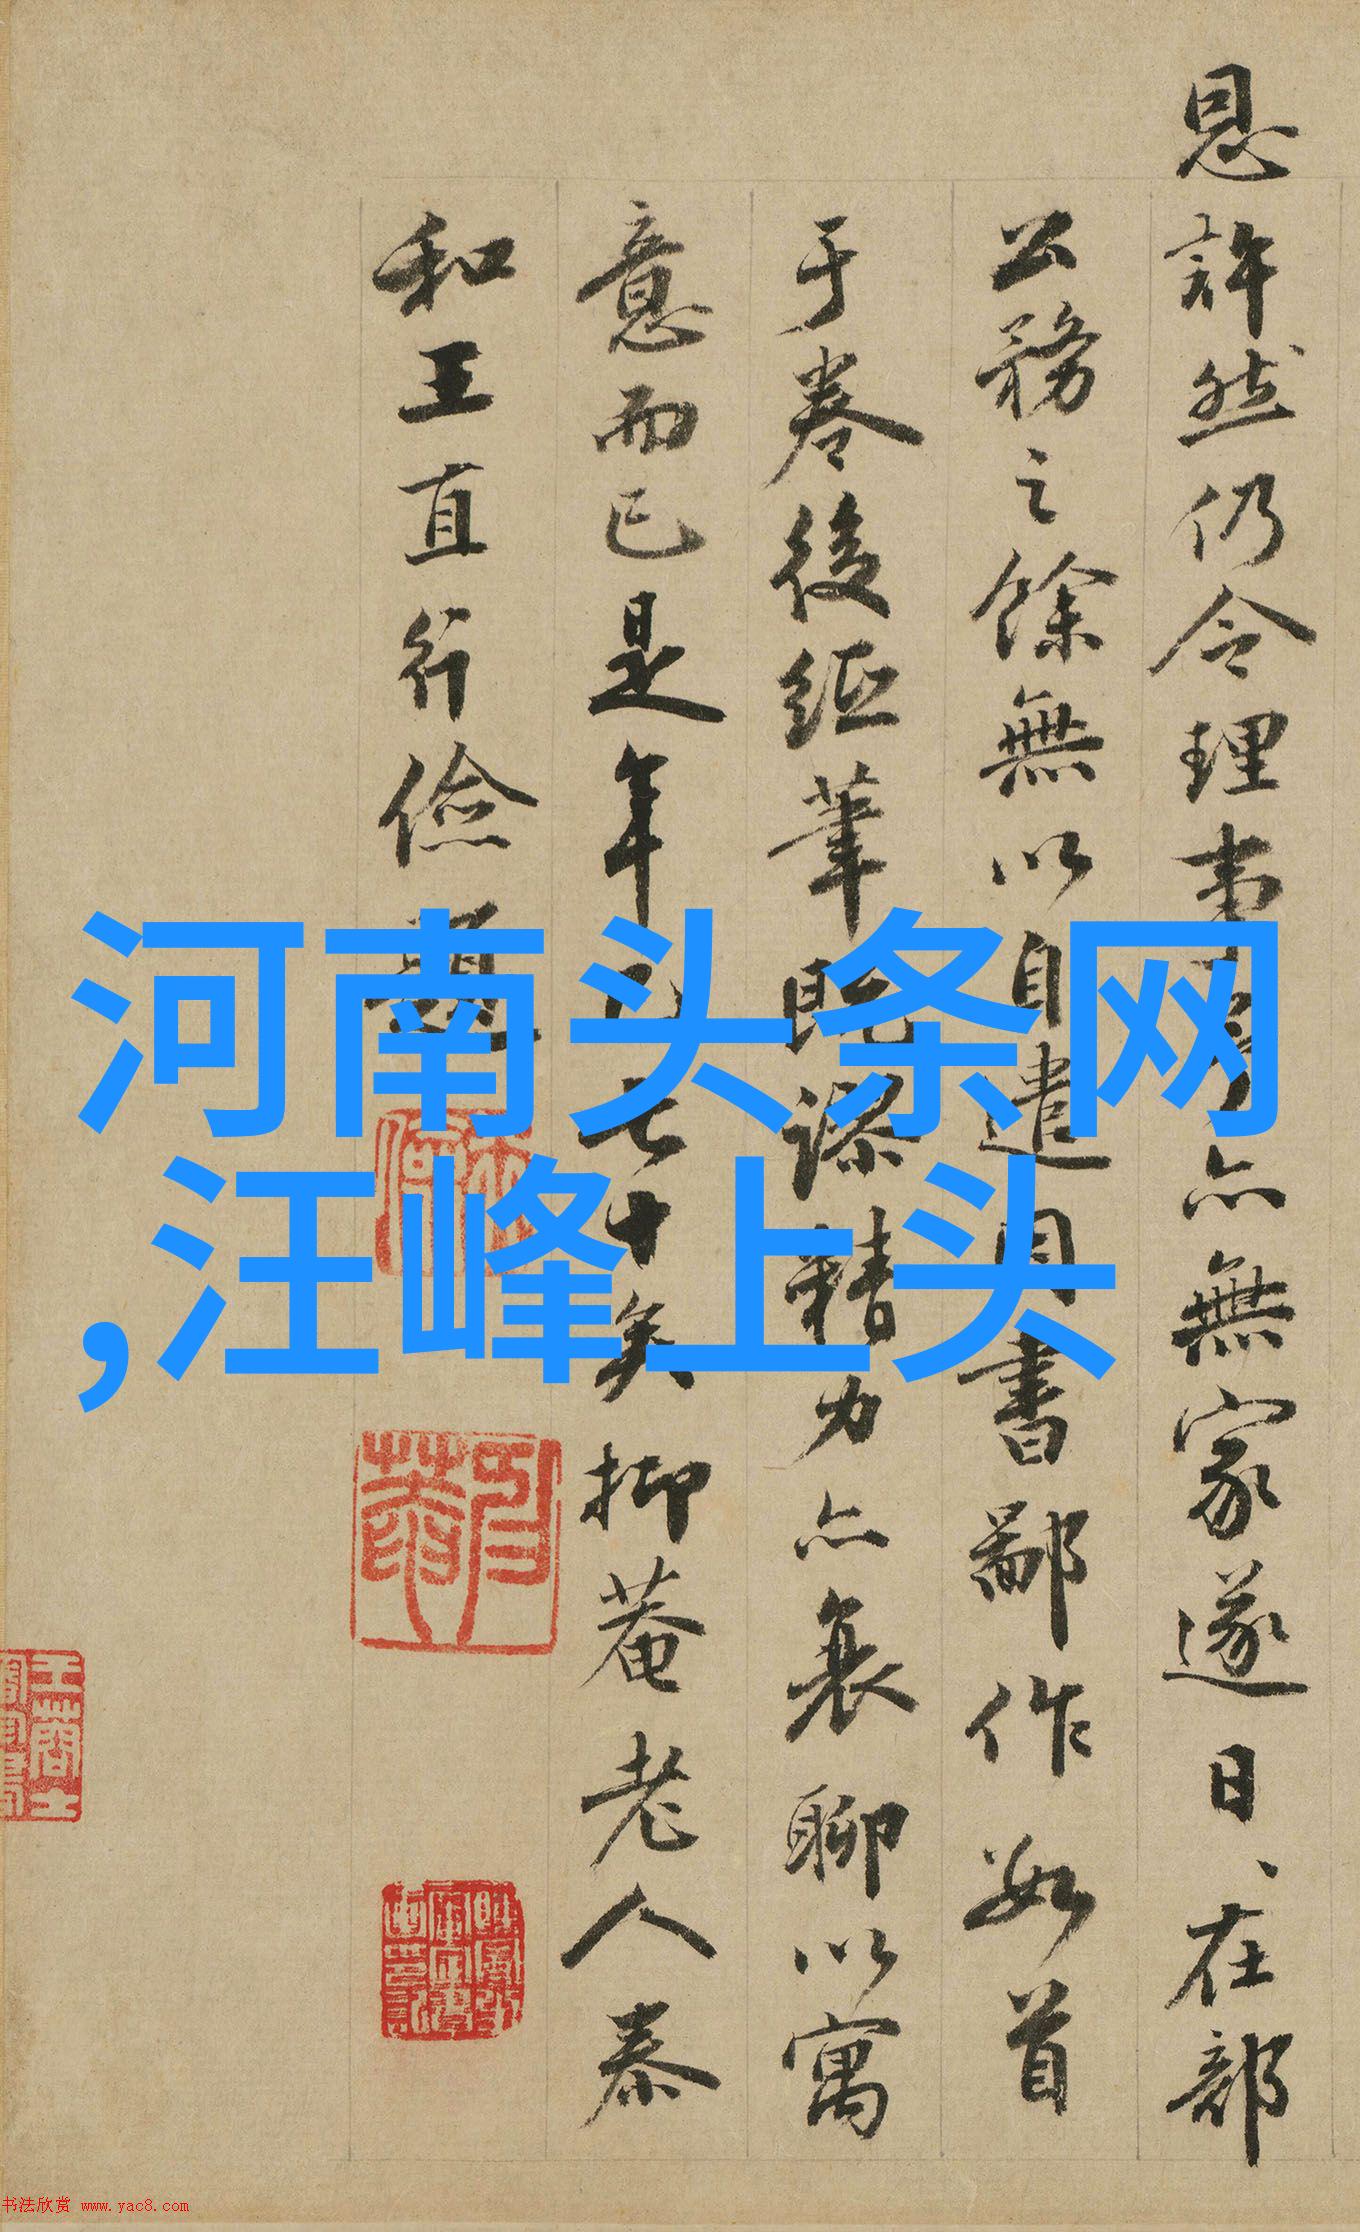 恩許然仍令理部事身亦無家遂日、在部
公務之餘無以自遣因書鄙作數首
于卷後紙筆既謬精力亦衰聊以寓
意而已是年凡七十矣抑菴老人泰
和王直行儉題
河南头条网
,汪峰上头
书法欣赏 www.yac8.com